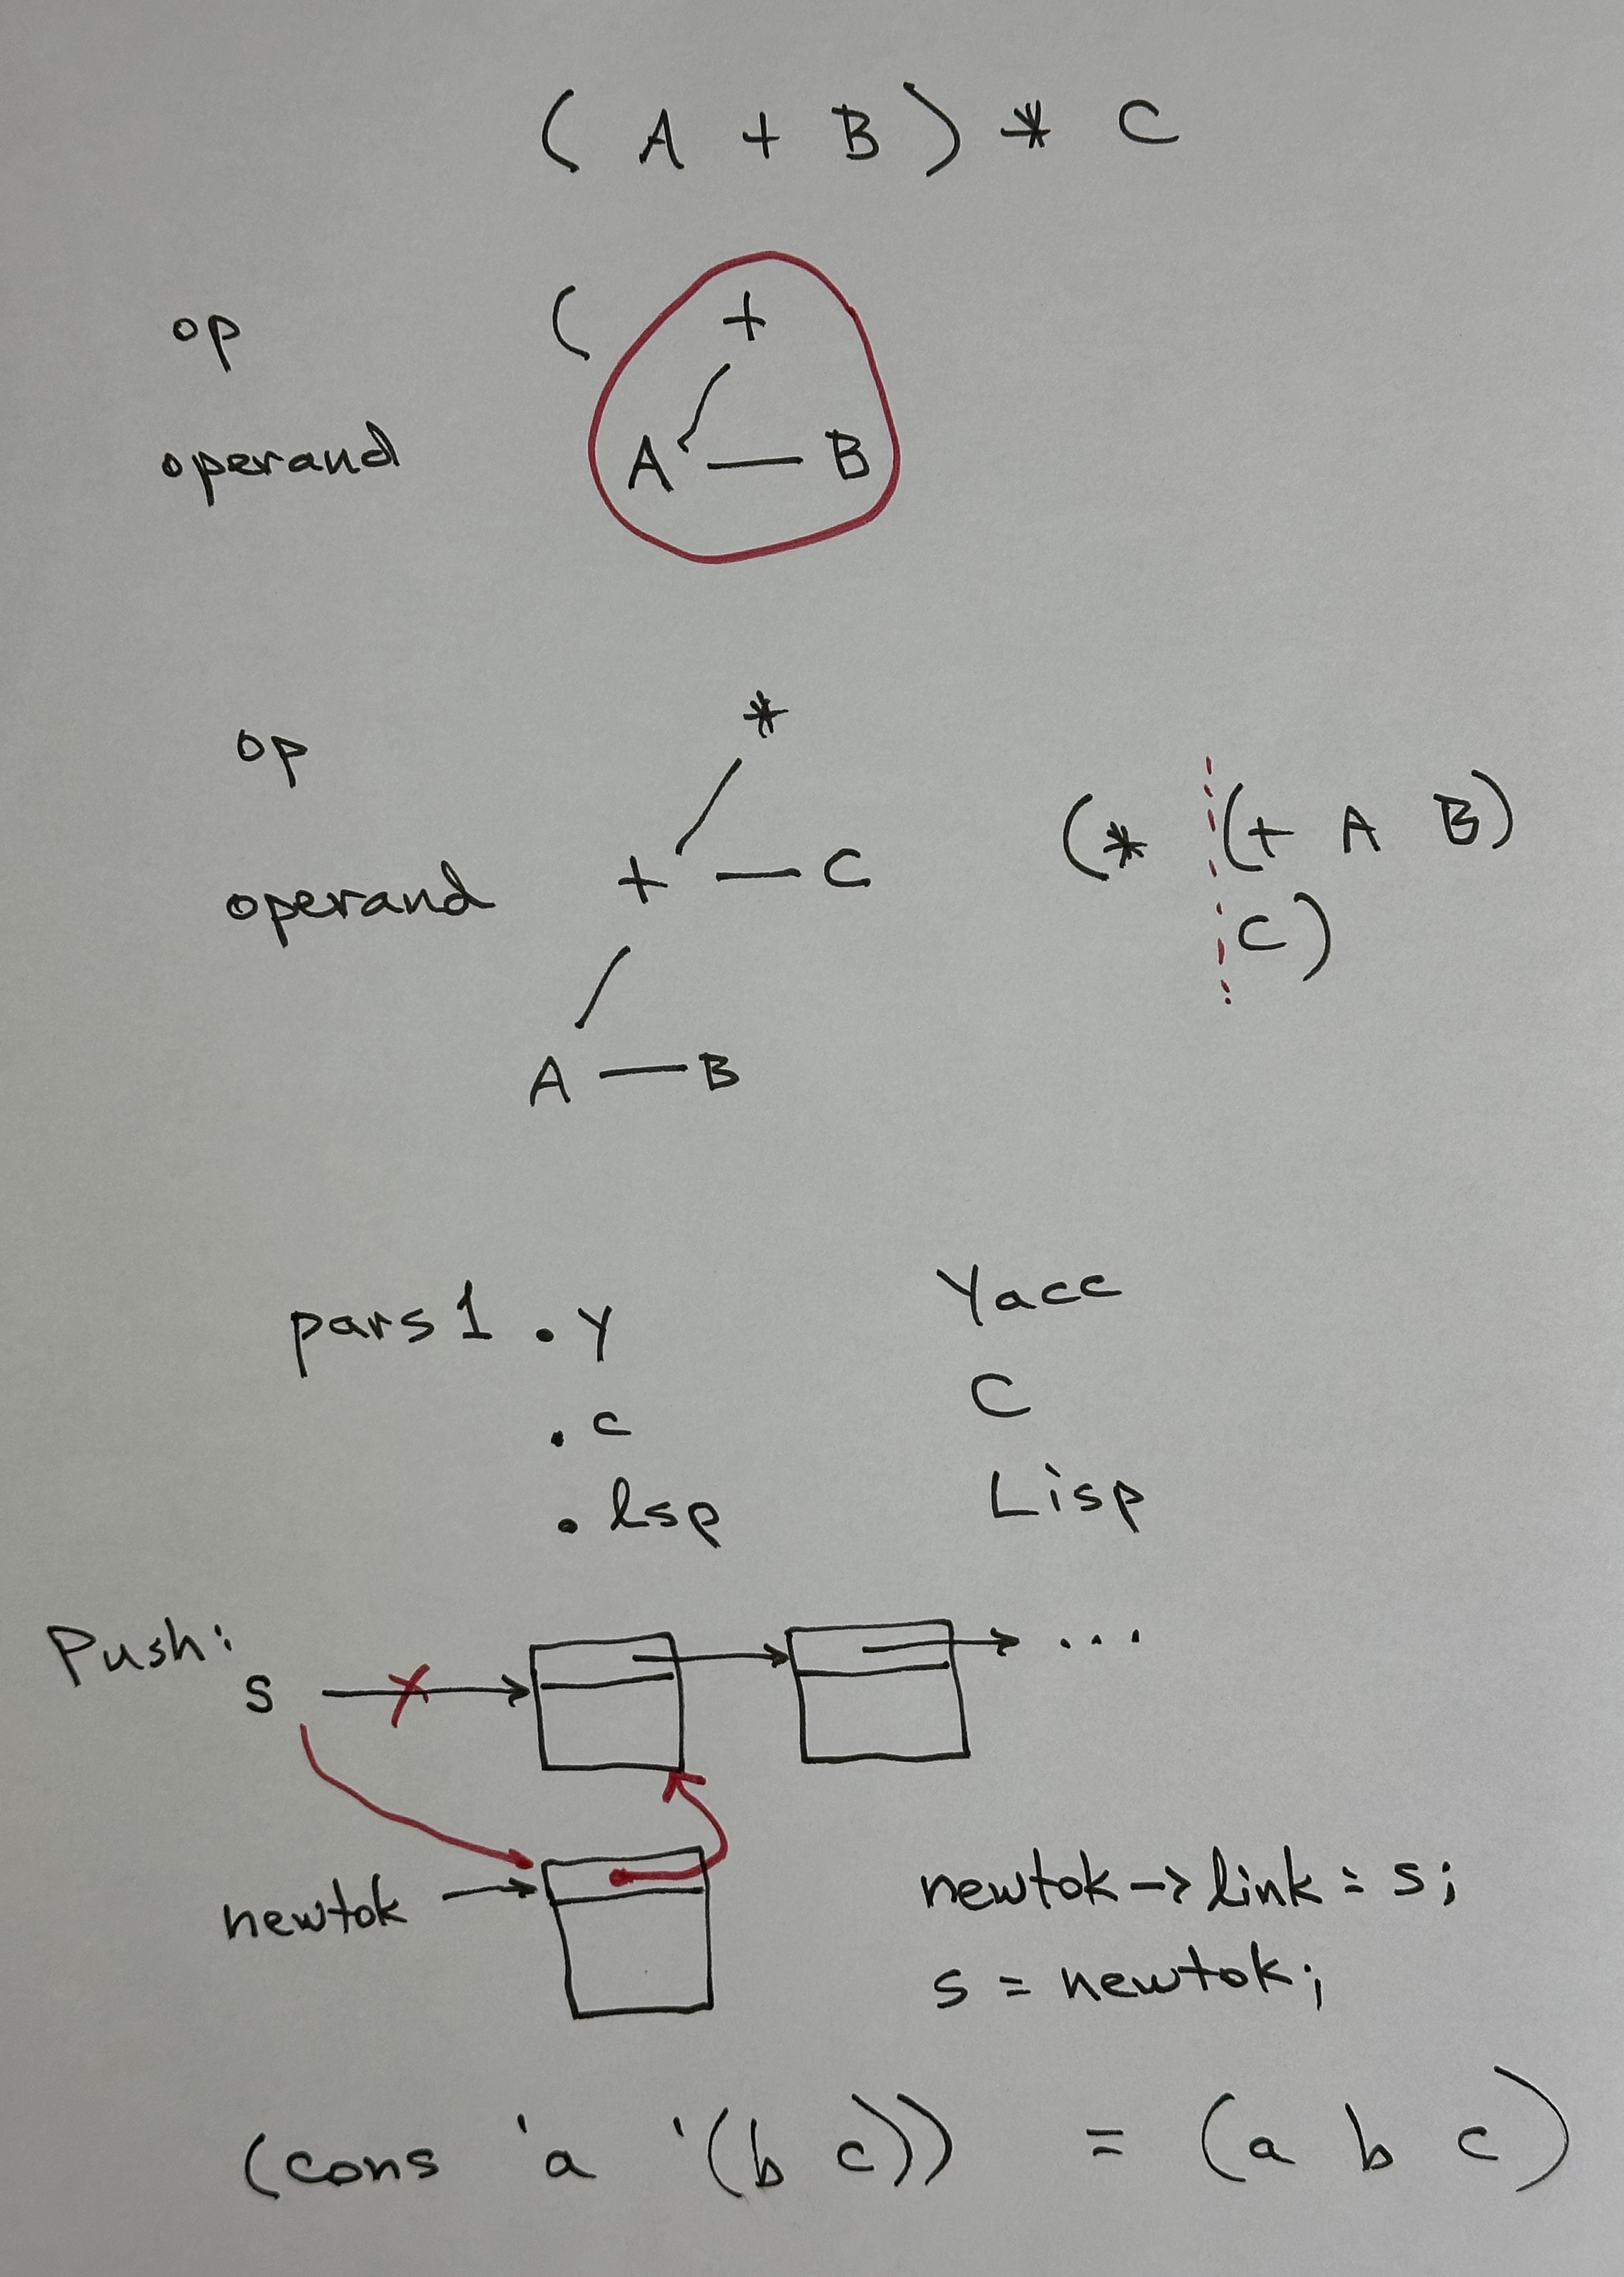 ( A + B ) * C
op ( +
operand A — B
*
op
operand + — C
(* (+ A B)
C)
A — B
pars1 .y Yacc
.c C
.lsp Lisp
Push:
s ...
newtok
newtok -> link = s;
s = newtok;
(cons 'a '(b c)) = (a b c)